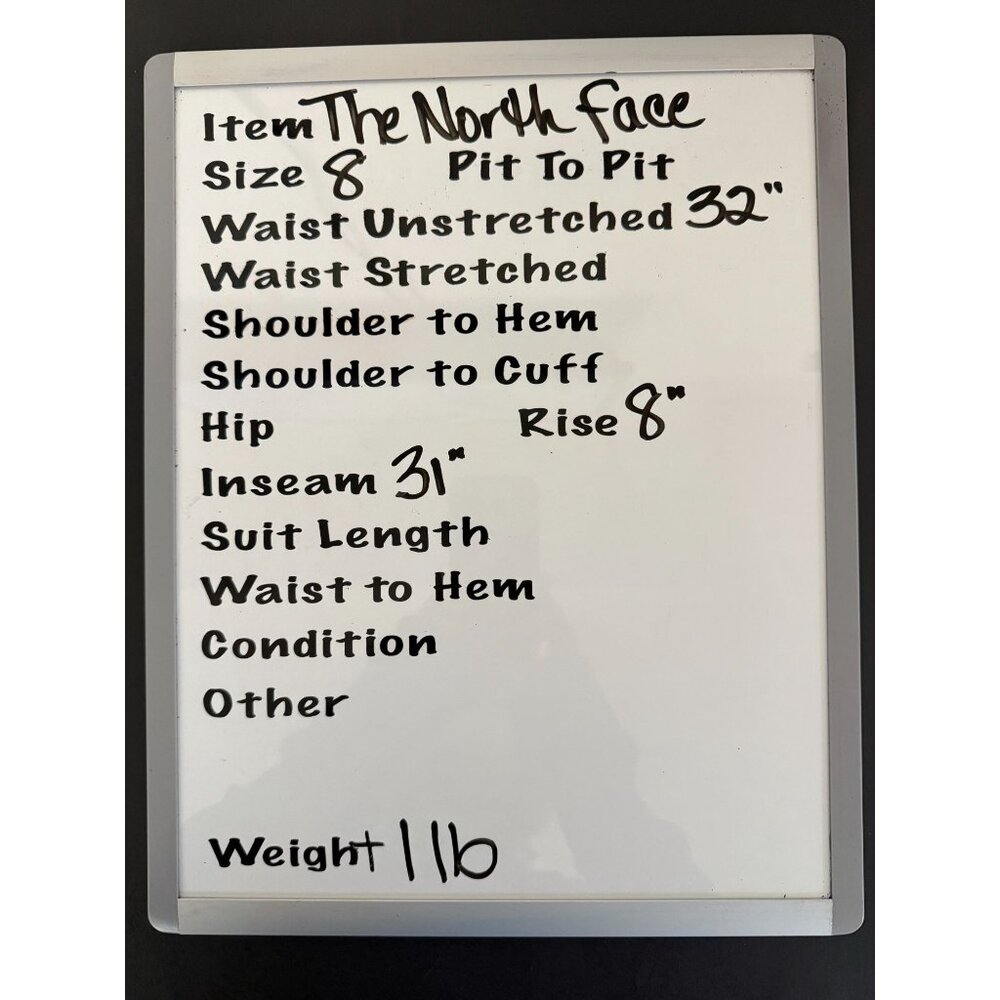 Item The North face
Size 8 Pit To Pit
Waist Unstretched 32"
Waist Stretched
Shoulder to Hem
Shoulder to Cuff
Hip Rise 8"
Inseam 31"
Suit Length
Waist to Hem
Condition
Other
Weight 1 lb